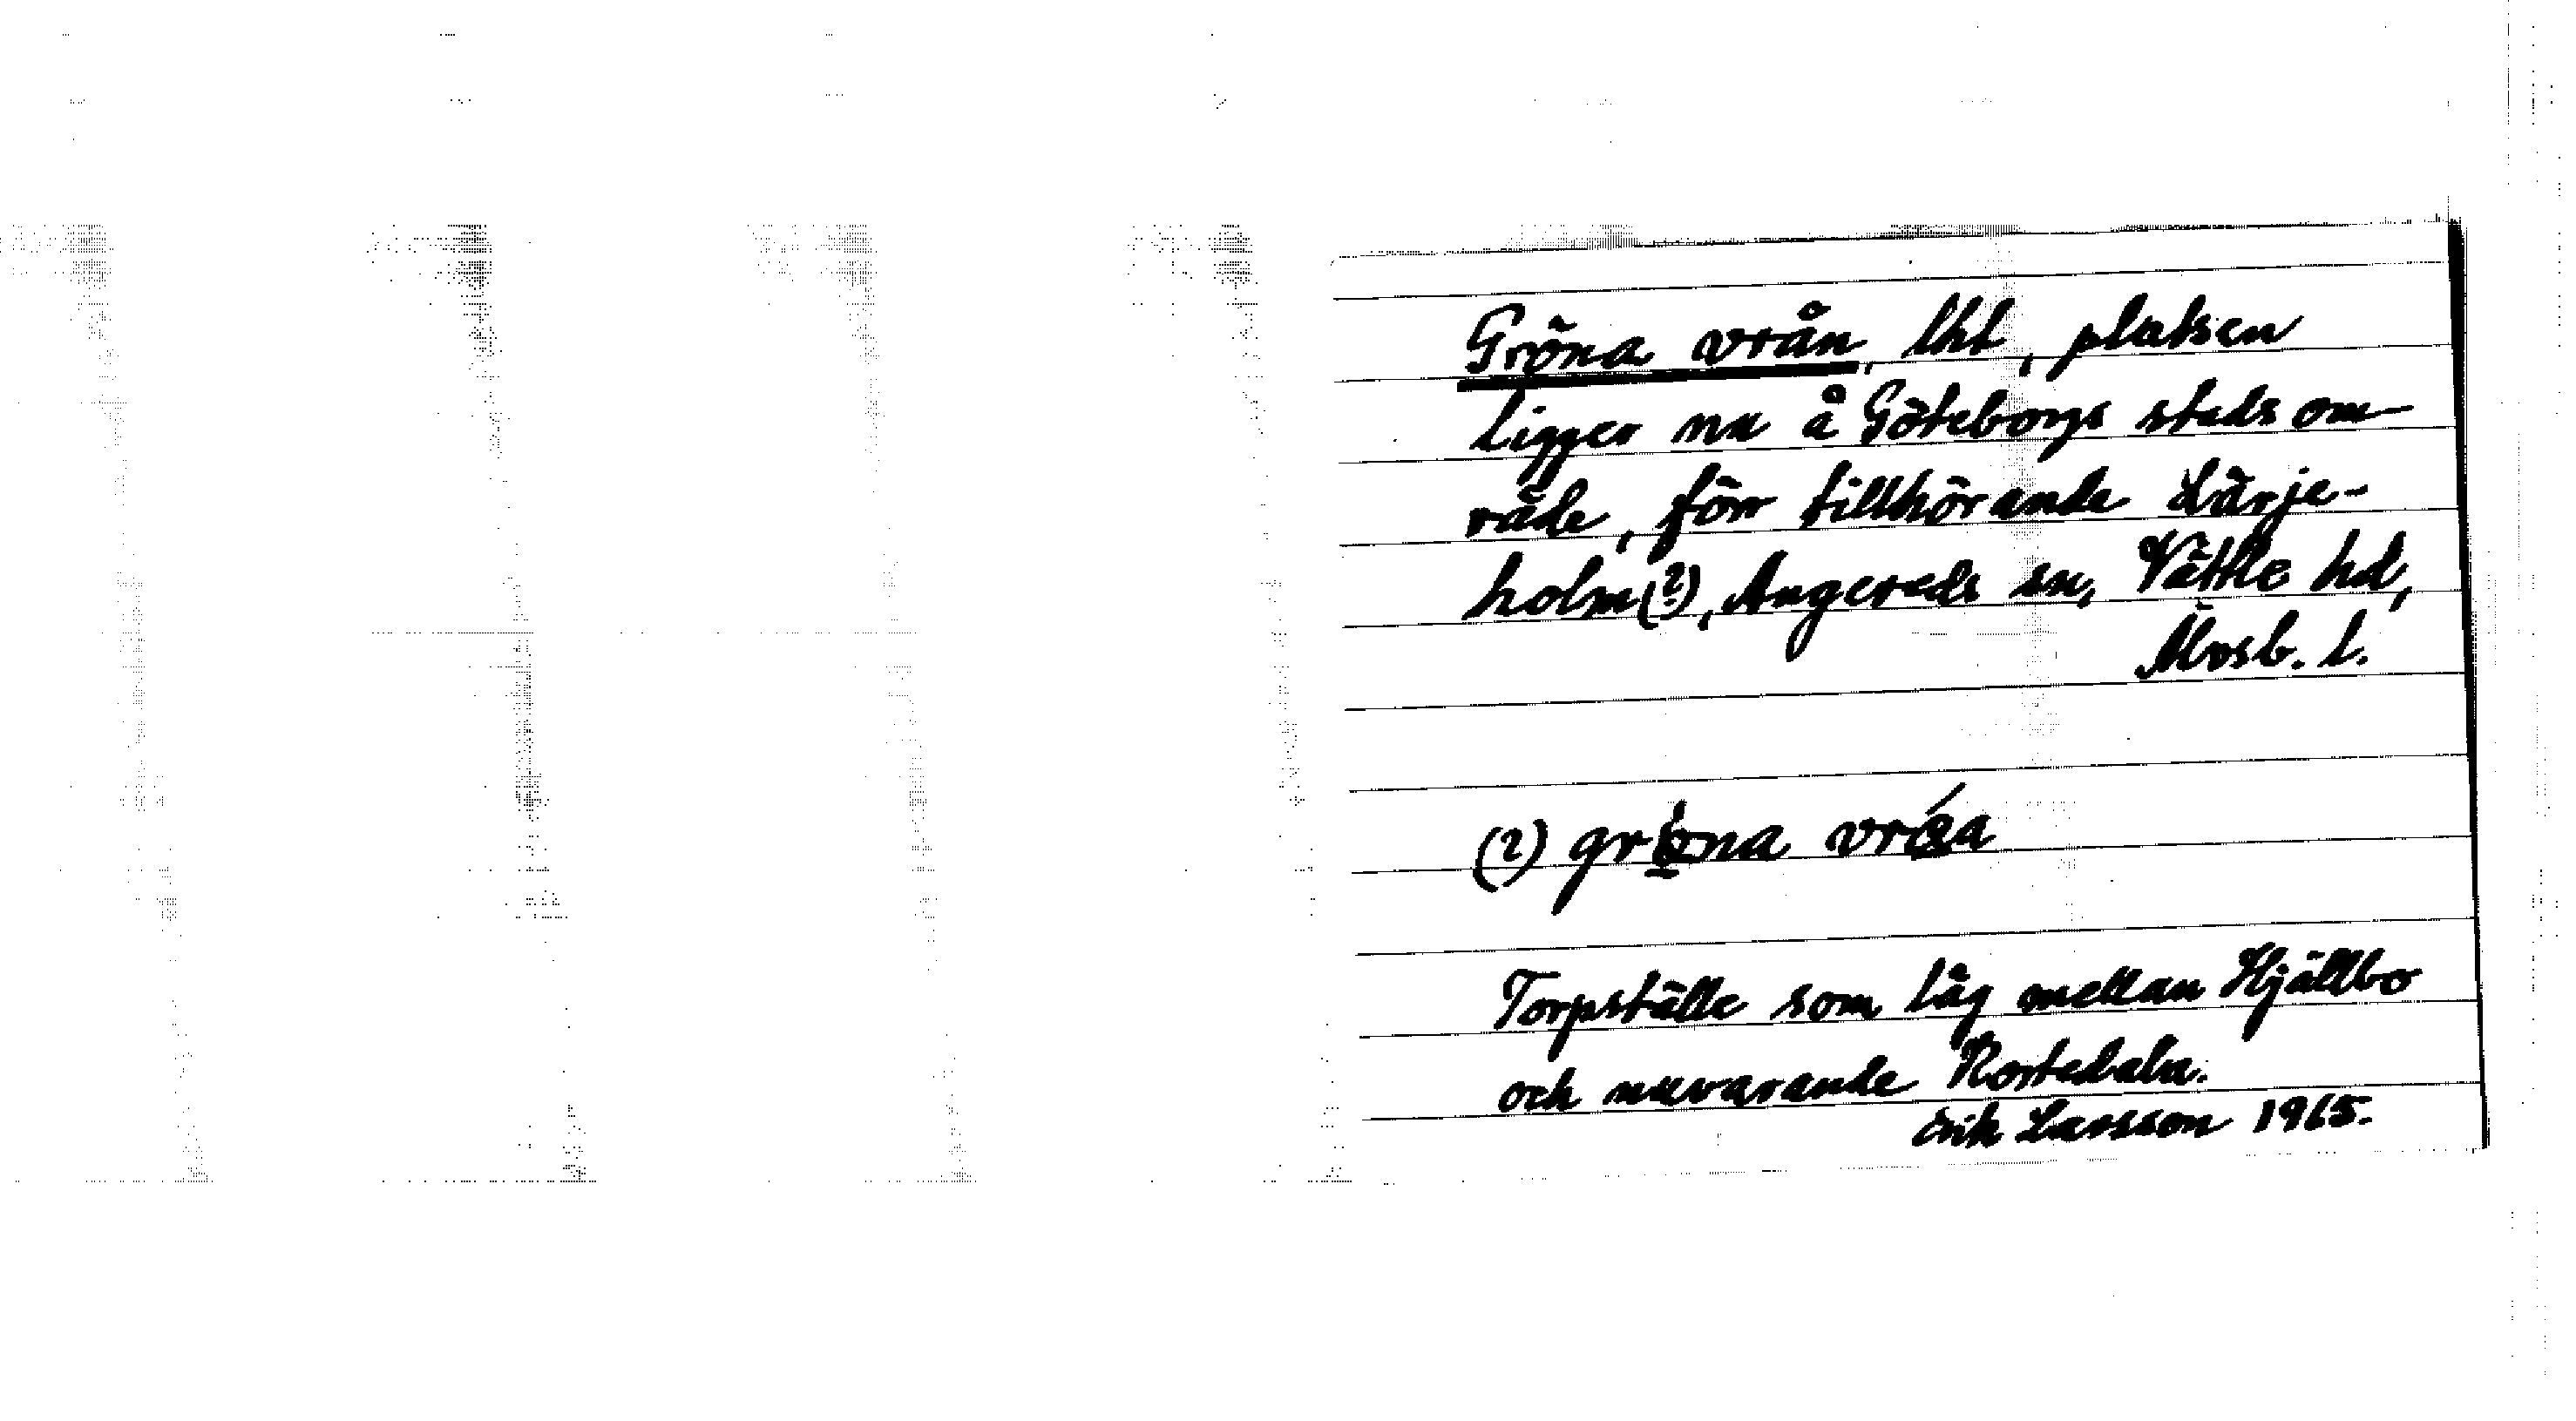 Gröna vrån, lht, platsen
ligger nu å Göteborgs stads om-
råde, förr tillhörande Lärje-
holm(?), Angereds sn, Vättle hd,
Älvsb. l.
(?) gröna vråa
Torpställe som låg mellan Hjällbo
och nuvarande Kortedala.
Erik Larsson 1965.